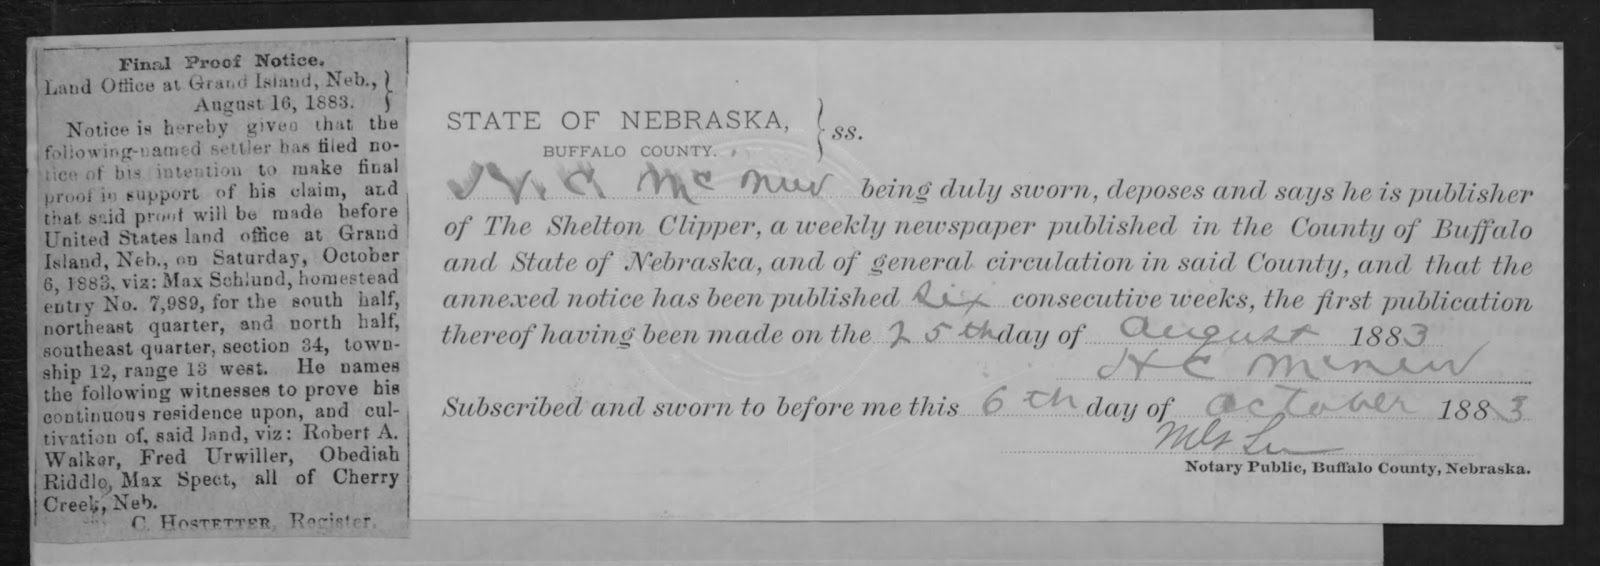 Final Proof Notice.
Land Office at Grand Island, Neb.,
August 16, 1883.
Notice is hereby given that the
following-named settler has filed no-
tice of his intention to make final
proof in support of his claim, and
that said proof will be made before
United States land office at Grand
Island, Neb., on Saturday, October
6, 1883, viz: Max Schlund, homestead
entry No. 7,989, for the south half,
northeast quarter, and north half,
southeast quarter, section 34, town-
ship 12, range 13 west. He names
the following witnesses to prove his
continuous residence upon, and cul-
tivation of, said land, viz: Robert A.
Walker, Fred Urwiller, Obediah
Riddle, Max Spect, all of Cherry
Creek, Neb.
C. HOSTETTER, Register.
STATE OF NEBRASKA, } ss.
BUFFALO COUNTY.
H. C. McNew being duly sworn, deposes and says he is publisher
of The Shelton Clipper, a weekly newspaper published in the County of Buffalo
and State of Nebraska, and of general circulation in said County, and that the
annexed notice has been published six consecutive weeks, the first publication
thereof having been made on the 25th day of August 1883
H C McNew
Subscribed and sworn to before me this 6th day of October 1883
Notary Public, Buffalo County, Nebraska.